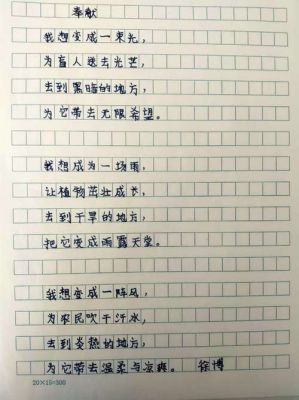 奉献
我想变成一束光，
为盲人送去光芒，
去到黑暗的地方，
为它带去无限希望。
我想成为一场雨，
让植物茁壮成长，
去到干旱的地方，
把它变成雨露天堂。
我想变成一阵风，
为农民吹干汗水，
去到炎热的地方，
为它带去温柔与凉爽。 徐博
20×15=300